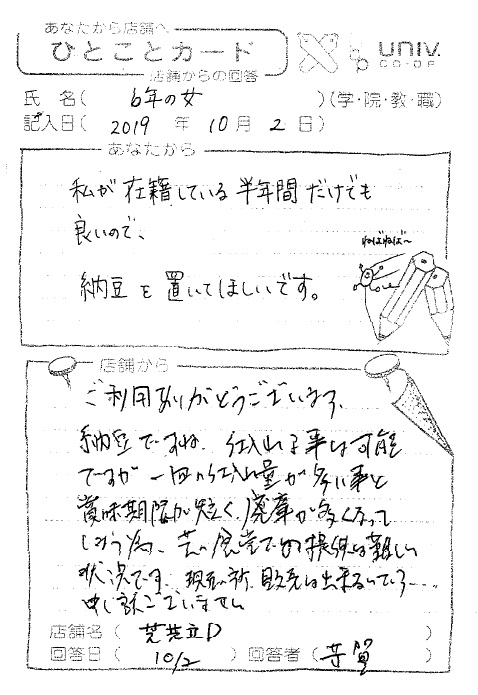 あなたから店舗へ
ひとことカード
店舗からの回答
UNIV.
CO-OP
氏 名( 6年の女 )(学・院・教・職)
記入日( 2019 年 10月 2日)
あなたから
私が在籍している半年間だけでも
良いので、
ねばねば〜
納豆を置いてほしいです。
店舗から
ご利用ありがとうございます、
納豆ですね、仕入れる事は可能
ですが一回の仕入れ量が多い事と
賞味期限が短く、廃棄が多くなって
しまう為、芝の食堂での提供は難しい
状況です、現在の所、販売は出来ないでる....
申し訳ございません
店舗名( 芝共立D )
回答日( 10/2 ) 回答者( )